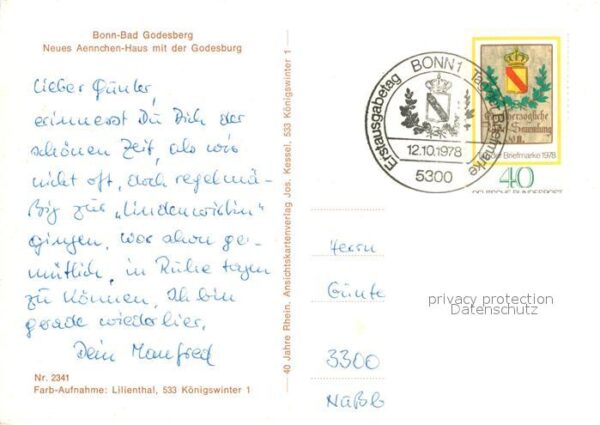 Bonn-Bad Godesberg
Neues Aennchen-Haus mit der Godesburg
Lieber Günter,
erinnerst Du Dich der
schönen Zeit, als wir
nicht oft, doch regelmä-
ßig zur „Lindenwirtin“
gingen, war schon ge-
mütlich, in Ruhe tagen
zu können. Ich bin
gerade wieder hier.
Dein Manfred
Nr. 2341
Farb-Aufnahme: Lilienthal, 533 Königswinter 1
40 Jahre Rhein. Ansichtskartenverlag Jos. Kessel, 533 Königswinter 1
Erstausgabetag BONN 1 Tag der Briefmarke
12.10.1978
5300
Tag der Briefmarke 1978
40
DEUTSCHE BUNDESPOST
Herrn
Günte
privacy protection
Datenschutz
3300